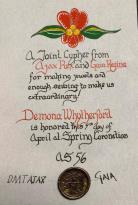 A Joint Cypher from
Ajax Rex and Gaia Regina
for making jewels and
enough sewing to make us
extraordinary!
Demona Whotherford
is honored this 7th day of
April at Spring Coronation
AS 56
DMTAJAX
GAIA